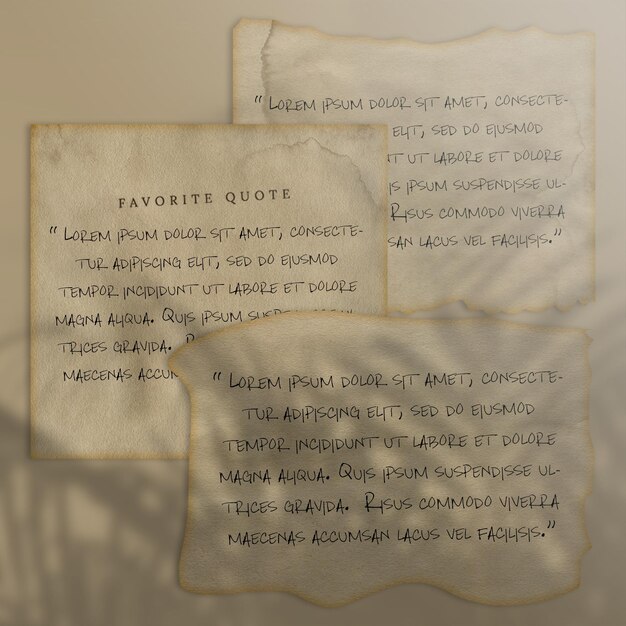 “ Lorem ipsum dolor sit amet, consecte-
elit, sed do eiusmod
ut labore et dolore
ipsum suspendisse ul-
Risus commodo viverra
lacus vel facilisis.”
FAVORITE QUOTE
“ Lorem ipsum dolor sit amet, consecte-
tur adipiscing elit, sed do eiusmod
tempor incididunt ut labore et dolore
magna aliqua. Quis ipsum
trices gravida.
maecenas
“ Lorem ipsum dolor sit amet, consecte-
tur adipiscing elit, sed do eiusmod
tempor incididunt ut labore et dolore
magna aliqua. Quis ipsum suspendisse ul-
trices gravida. Risus commodo viverra
maecenas accumsan lacus vel facilisis.”